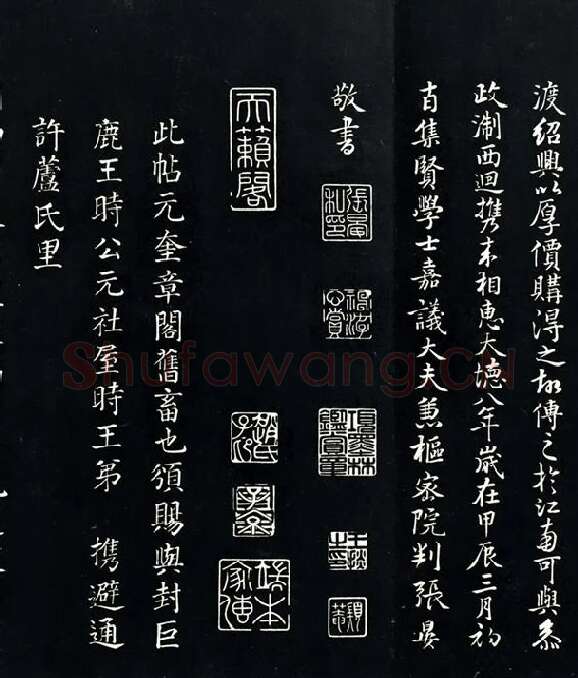 渡紹興以厚價購得之故傳之於江南可與參
政淛西迴携來相惠大德八年歲在甲辰三月初
吉集賢學士嘉議大夫兼樞密院判張晏
敬書
張晏私印
項墨林鑑賞章
天籟閣
趙氏
此帖元奎章閣舊畜也頒賜與封巨
鹿王時公元社屋時王第 携避通
許蘆氏里
Shufawang.cn